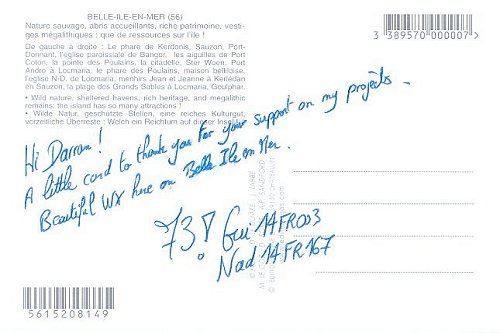 BELLE-ILE-EN-MER (56)
Nature sauvage, abris accueillants, riche patrimoine, vesti-
ges mégalithiques : que de ressources sur l'île !
De gauche à droite : Le phare de Kerdonis, Sauzon, Port-
Donnant, l'église paroissiale de Bangor, les aiguilles de Port
Coton, la pointe des Poulains, la citadelle, Ster Woen, Port
Andro à Locmaria, le phare des Poulains, maison belliloise,
l'église N-D. de Locmaria, menhirs Jean et Jeanne à Kerlédan
en Sauzon, la plage des Grands Sables à Locmaria, Goulphar.
• Wild nature, sheltered havens, rich heritage, and megalithic
remains: the island has so many attractions !
• Wilde Natur, geschützte Stellen, eine reiches Kulturgut,
vorzeitliche Überreste : Welch ein Reichtum auf dieser Insel
3 389570 000007 >
Hi Darran !
A little card to thank you for your support on my projects.
Beautiful WX here on Belle Ile en Mer.
73 ! Gui 14FR003
Nad 14FR167
5615208149